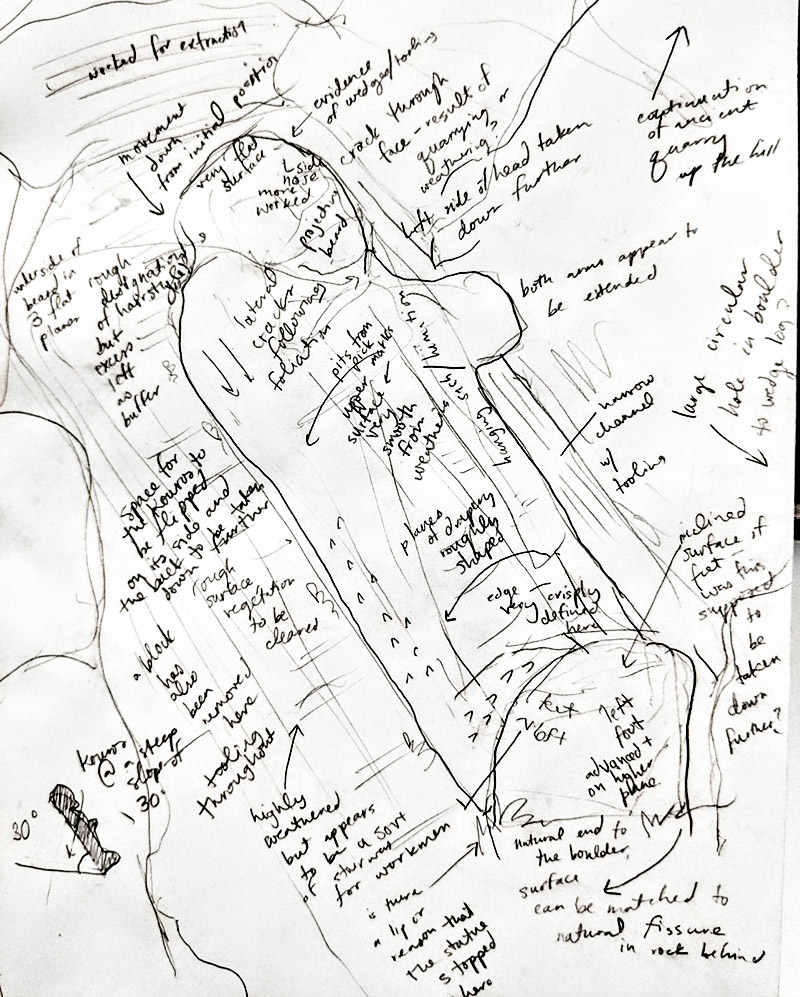 worked for extraction
movement
down
from initial position
evidence
of wedges/tooling
crack through
face - result of
quarrying or
weathering?
continuation
of ancient
quarry
up the hill
very flat
surface
L side
nose
more
worked
projecting
beard
left side of head taken
down further
underside of
beard in
3 flat
planes
rough
designation
of hairstyle
but
excess
left
as
buffer
lateral
cracks
following
foliation
both arms appear to
be extended
large circular
hole in boulder
to wedge log?
pits from
pick marks
upper
surface
very
smooth
from
weathering
himation
hanging
narrow
channel
w/
tooling
space for
the kouros to
be flipped
on its side and
the back to be taken
down further
places
of drapery
roughly
shaped
inclined
surface of
feet -
was this
supposed
to
be
taken
down
further?
rough
surface
vegetation
to be
cleared
edge
very crisply
defined
here
a block
has
also
been
removed
here
kouros
@ a steep
slope of
30°
tooling
throughout
6ft
left
foot
advanced +
on higher
plane
30°
highly
weathered
but appears
to be a sort
of stairway
for workmen
natural end to
the boulder,
surface
can be matched to
natural fissure
in rock behind
is there
a lip or
reason that
the statue
stopped
here